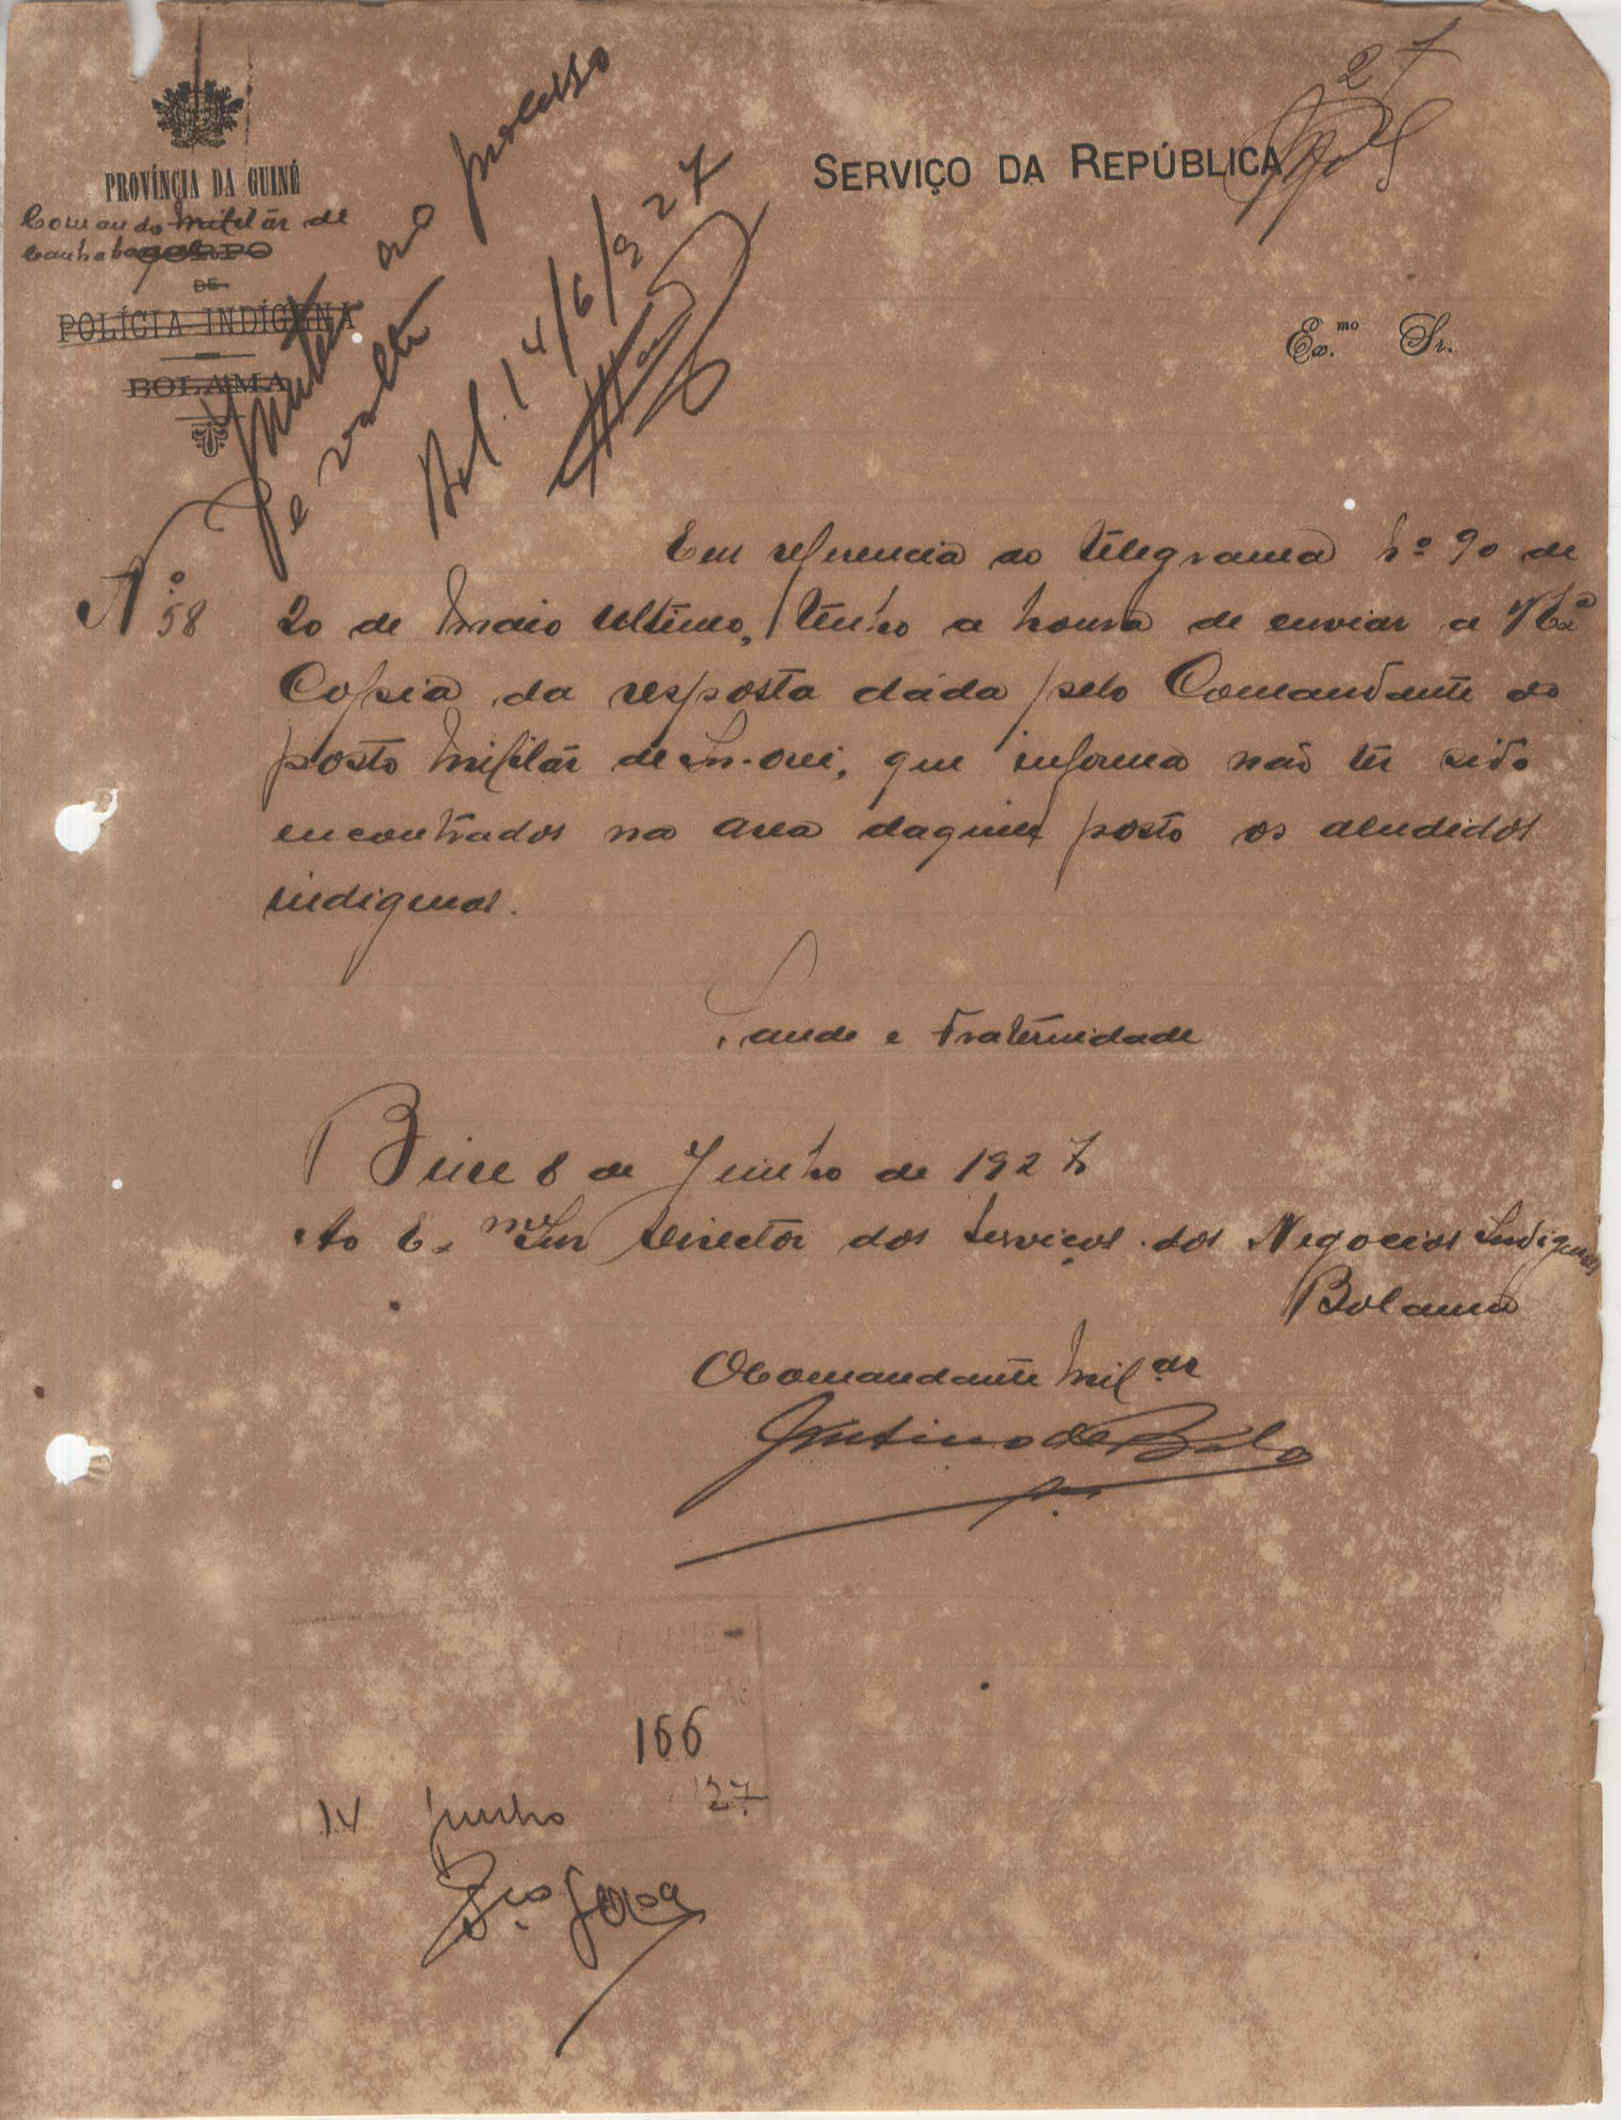 27
PROVÍNCIA DA GUINÉ
Comando Militár de
Canhabaque
CORPO
DE
POLÍCIA INDÍGENA
BOLAMA
SERVIÇO DA REPÚBLICA
Junte ao processo
e volte
Bol. 14/6/927
Ex.mo Sr.
Nº 58
Em referencia ao telegrama nº 90 de
20 de Maio ultimo, tenho a honra de enviar a V Exª
Copia da resposta dáda pelo Comandante do
posto Militár de In-orei, que informa não ter sido
encontrados na area daquele posto os aludidos
indigenas.
Saude e Fraternidade
Bine 8 de Junho de 1927
Ao Exmo Snr Director dos Serviços dos Negocios Indigenas
Bolama
O Comandante Mil.ar
166
14 Junho 27